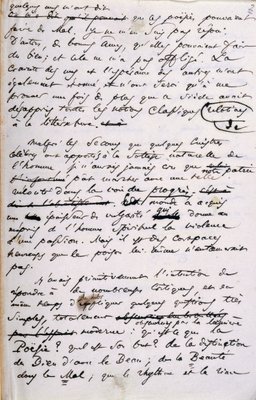 quelques uns m'ont dit
que ces poésies pouvaient
faire du Mal. Je ne m'en suis pas réjoui.
D'autres, de bonnes âmes, qu'elles pouvaient faire
du bien; et cela ne m'a pas affligé. La
crainte des uns et l'espérance des autres m'ont
également étonné, et n'ont servi qu'à me
prouver une fois de plus que ce siècle avait
désappris toutes les notions classiques relatives
à la littérature.
Malgré les secours que quelques cuistres
célèbres ont apportés à la sottise naturelle de
l'homme, je n'aurais jamais cru que notre patrie
pût marcher avec une telle
vélocité dans la voie du progrès.
Ce monde a acquis
une épaisseur de vulgarité qui donne au
mépris de l'homme spirituel la violence
d'une passion. Mais il est des carapaces
heureuses que le poison lui même n'entamerait
pas.
J'avais primitivement l'intention de
répondre à de nombreuses critiques, et en
même temps d'expliquer quelques questions très
simples, totalement
obscurcies par la lumière
moderne: qu'est ce que la
Poésie? quel est son but? de la distinction
du Bien d'avec le Beau; de la Beauté
dans le Mal; que le rhythme et la rime